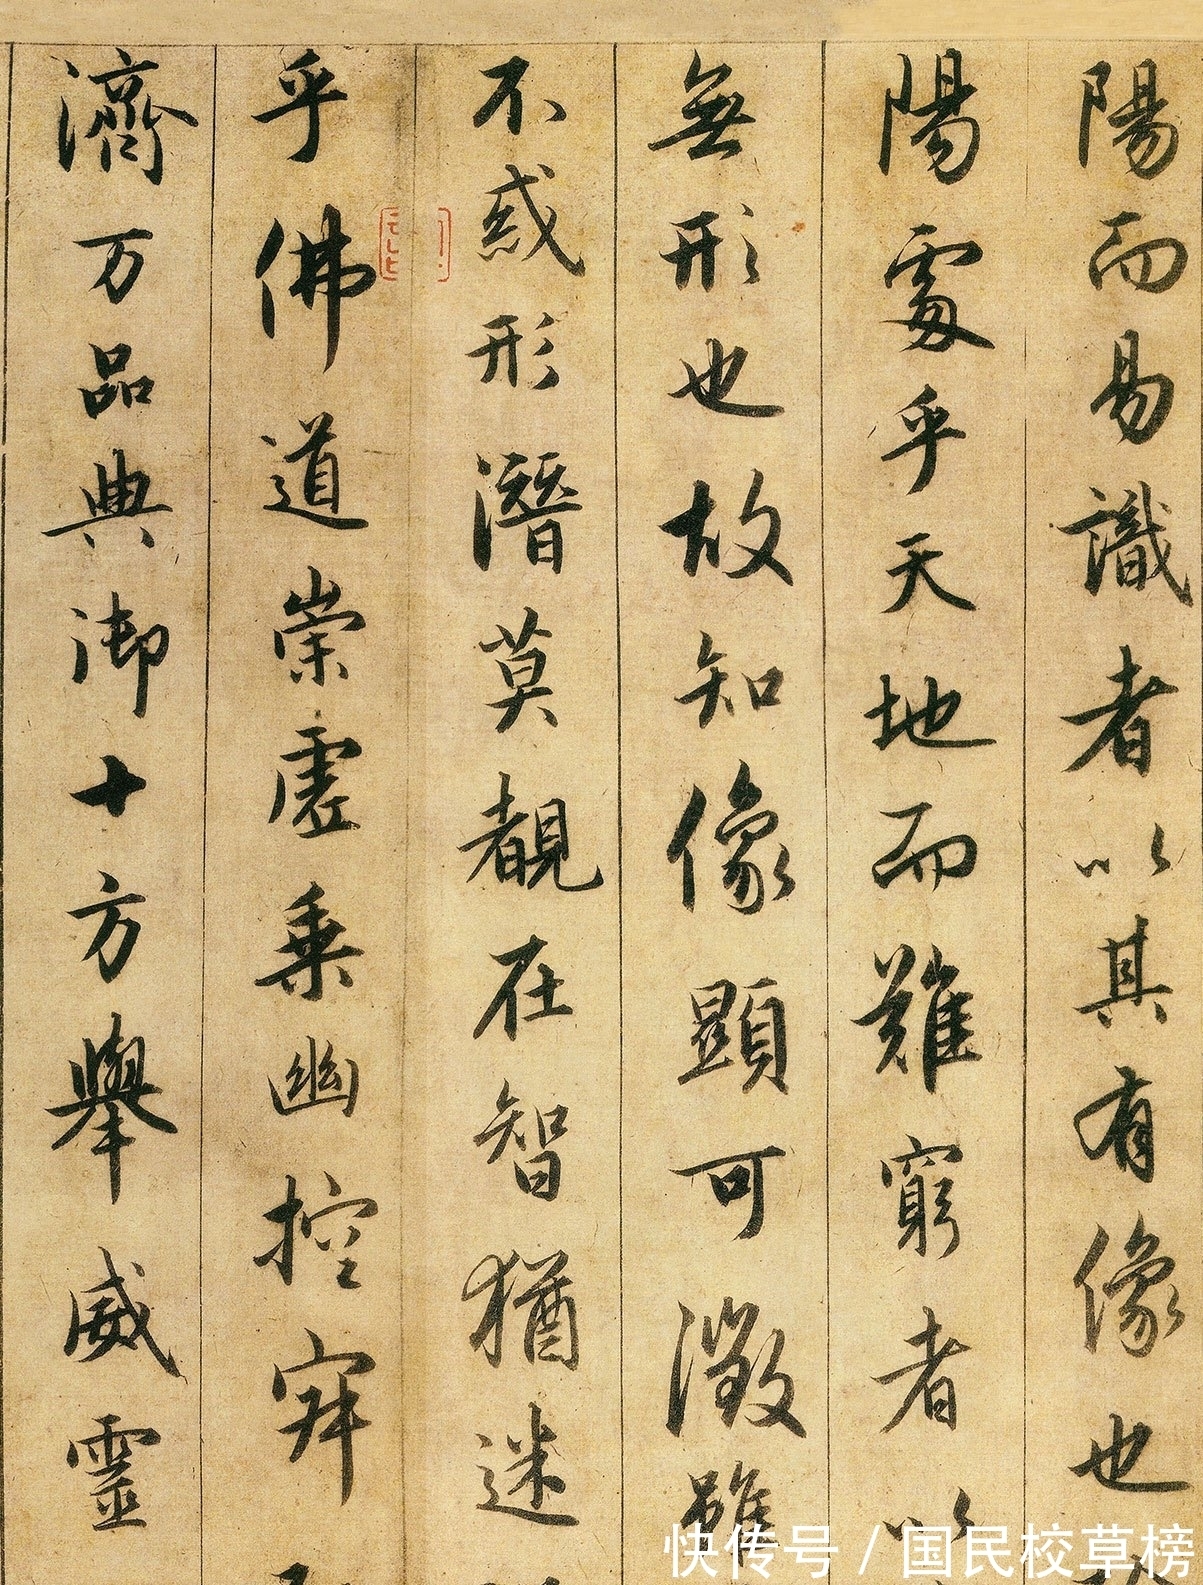 陽而易識者以其有像也
陽處乎天地而難窮者以
無形也故知像顯可徵雖
不惑形潛莫覩在智猶迷
乎佛道崇虛乘幽控寂
濟万品典御十方舉威靈
快传号/国民校草榜